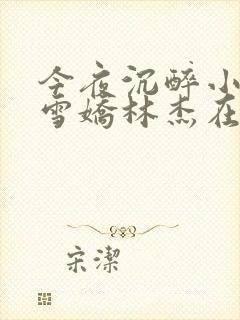 今夜沉醉小
雪嬌林杰在
宋潔